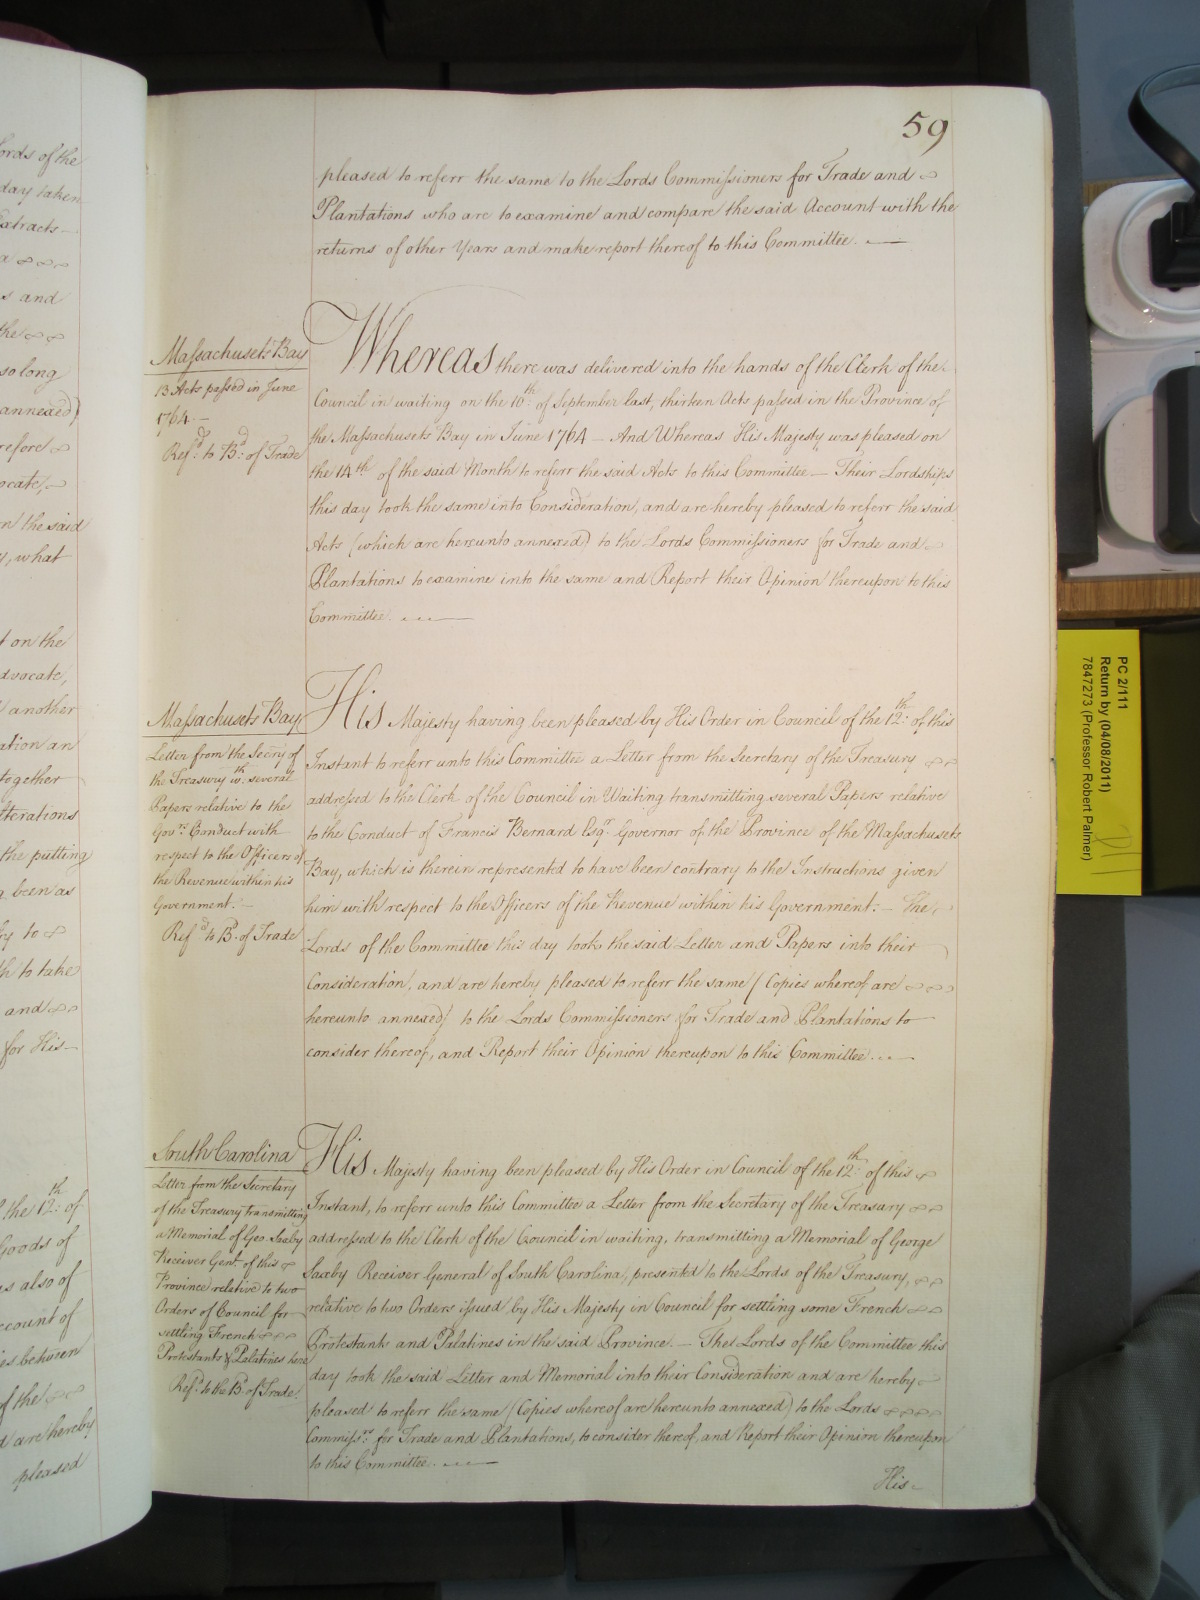 59
pleased to referr the same to the Lords Commissioners for Trade and
Plantations who are to examine and compare the said Account with the
returns of other Years and make report thereof to this Committee.
Massachusets Bay
13 Acts passed in June
1764.
Ref.d to B.d of Trade
Whereas there was delivered into the hands of the Clerk of the
Council in waiting on the 10th of September last, thirteen Acts passed in the Province of
the Massachusets Bay in June 1764 — And Whereas His Majesty was pleased on
the 14th of the said Month to referr the said Acts to this Committee — Their Lordships
this day took the same into Consideration, and are hereby pleased to referr the said
Acts (which are hereunto annexed) to the Lords Commissioners for Trade and
Plantations to examine into the same and Report their Opinion thereupon to this
Committee.
Massachusets Bay
Letter from the Secry of
the Treasury wth several
Papers relative to the
Govrs Conduct with
respect to the Officers of
the Revenue within his
Government.
Refd to B. of Trade
His Majesty having been pleased by His Order in Council of the 12th of this
Instant to referr unto this Committee a Letter from the Secretary of the Treasury
addressed to the Clerk of the Council in Waiting transmitting several Papers relative
to the Conduct of Francis Bernard Esqr Governor of the Province of the Massachusets
Bay, which is therein represented to have been contrary to the Instructions given
him with respect to the Officers of the Revenue within his Government: — The
Lords of the Committee this day took the said Letter and Papers into their
Consideration, and are hereby pleased to referr the same (Copies whereof are
hereunto annexed) to the Lords Commissioners for Trade and Plantations to
consider thereof, and Report their Opinion thereupon to this Committee.
South Carolina
Letter from the Secretary
of the Treasury transmitting
a Memorial of Geo. Saxby
Receiver Genl. of this
Province relative to two
Orders of Council for
settling French
Protestants & Palatines here
Refd to the B. of Trade.
His Majesty having been pleased by His Order in Council of the 12th of this
Instant, to referr unto this Committee a Letter from the Secretary of the Treasury
addressed to the Clerk of the Council in waiting, transmitting a Memorial of George
Saxby Receiver General of South Carolina, presented to the Lords of the Treasury,
relative to two Orders issued by His Majesty in Council for settling some French
Protestants and Palatines in the said Province. — The Lords of the Committee this
day took the said Letter and Memorial into their Consideration and are hereby
pleased to referr the same (Copies whereof are hereunto annexed) to the Lords
Commissrs for Trade and Plantations, to consider thereof, and Report their Opinion thereupon
to this Committee.
His
PC 2/111
Return by (04/08/2011)
7847273 (Professor Robert Palmer)